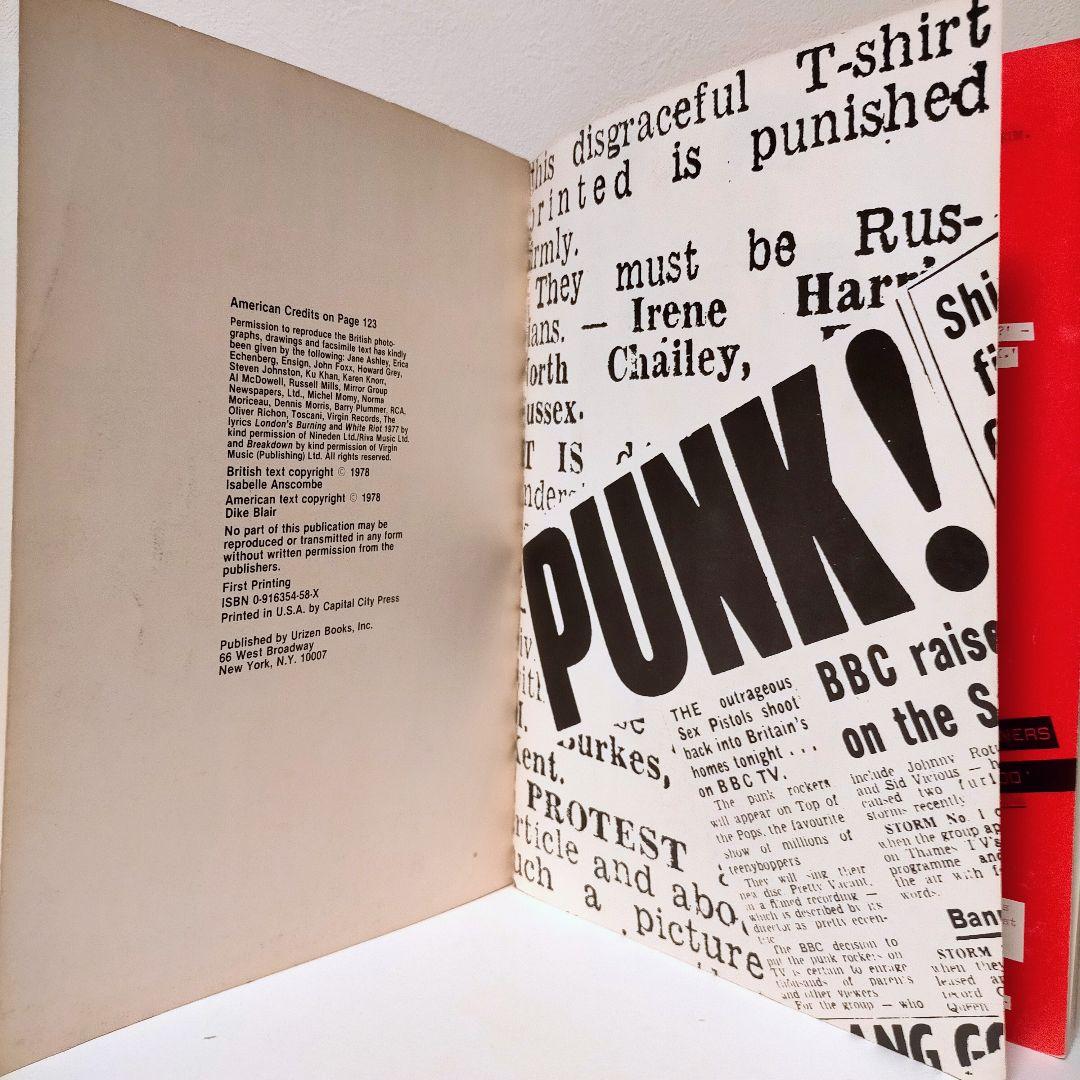 American Credits on Page 123
Permission to reproduce the British photo-
graphs, drawings and facsimile text has kindly
been given by the following: Jane Ashley, Erica
Echenberg, Ensign, John Foxx, Howard Grey,
Steven Johnston, Ku Khan, Karen Knorr,
Al McDowell, Russell Mills, Mirror Group
Newspapers, Ltd., Michel Momy, Norma
Moriceau, Dennis Morris, Barry Plummer, RCA,
Oliver Richon, Toscani, Virgin Records, The
lyrics London's Burning and White Riot 1977 by
kind permission of Nineden Ltd./Riva Music Ltd.
and Breakdown by kind permission of Virgin
Music (Publishing) Ltd. All rights reserved.
British text copyright © 1978
Isabelle Anscombe
American text copyright © 1978
Dike Blair
No part of this publication may be
reproduced or transmitted in any form
without written permission from the
publishers.
First Printing
ISBN 0-916354-58-X
Printed in U.S.A. by Capital City Press
Published by Urizen Books, Inc.
66 West Broadway
New York, N.Y. 10007
this disgraceful T-shirt
printed is punished
irmly.
They must be Rus-
ians. — Irene
North Chailey,
ussex.
T IS
PUNK!
Burkes,
Kent.
PROTEST
rticle and abo
uch a picture
Shi
fi
BBC raise
on the S
THE outrageous
Sex Pistols shoot
back into Britain's
homes tonight . . .
on BBC TV.
The punk rockers
will appear on Top of
the Pops, the favourite
show of millions of
teenyboppers
They will sing their
new disc Pretty Vacant,
in a filmed recording —
which is described by its
director as pretty eccen-
tric
The BBC decision to
put the punk rockers on
TV is certain to enrage
thousands of parents
and other viewers
For the group — who
include Johnny Rott
and Sid Vicious — h
caused two furi
storms recently
STORM No. 1 c
when the group ap
on Thames TV's
programme and
the air with f
words.
Ban
STORM
when they
leased a
record
Queen
ANG GO